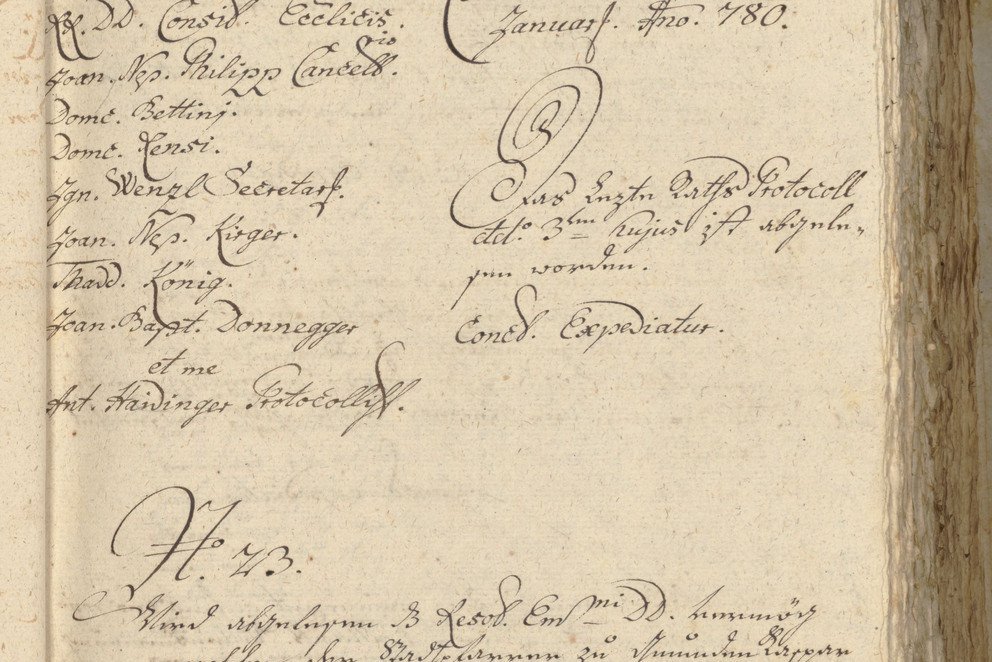 RR. DD. Consil. Ecclicis.
Joan. Nep. Philipp Cancell.rio
Domc. Bettinj.
Domc. Rensi.
Ign. Wenzl Secretary.
Joan. Nep. Kirger.
Thadd. König.
Joan. Bapt. Donnegger
et me
Ant. Haidinger Protocollist.
January. Ano. 780.
Das Lezte Raths Protocoll
ddo. 3tm hujus ist abgele-
sen worden.
Concl. Expediatur.
No. 23.
Wird abgelesen Resol. Emmi DD. vermög
der Stadtpfarrer zu Gmunden Kaspar